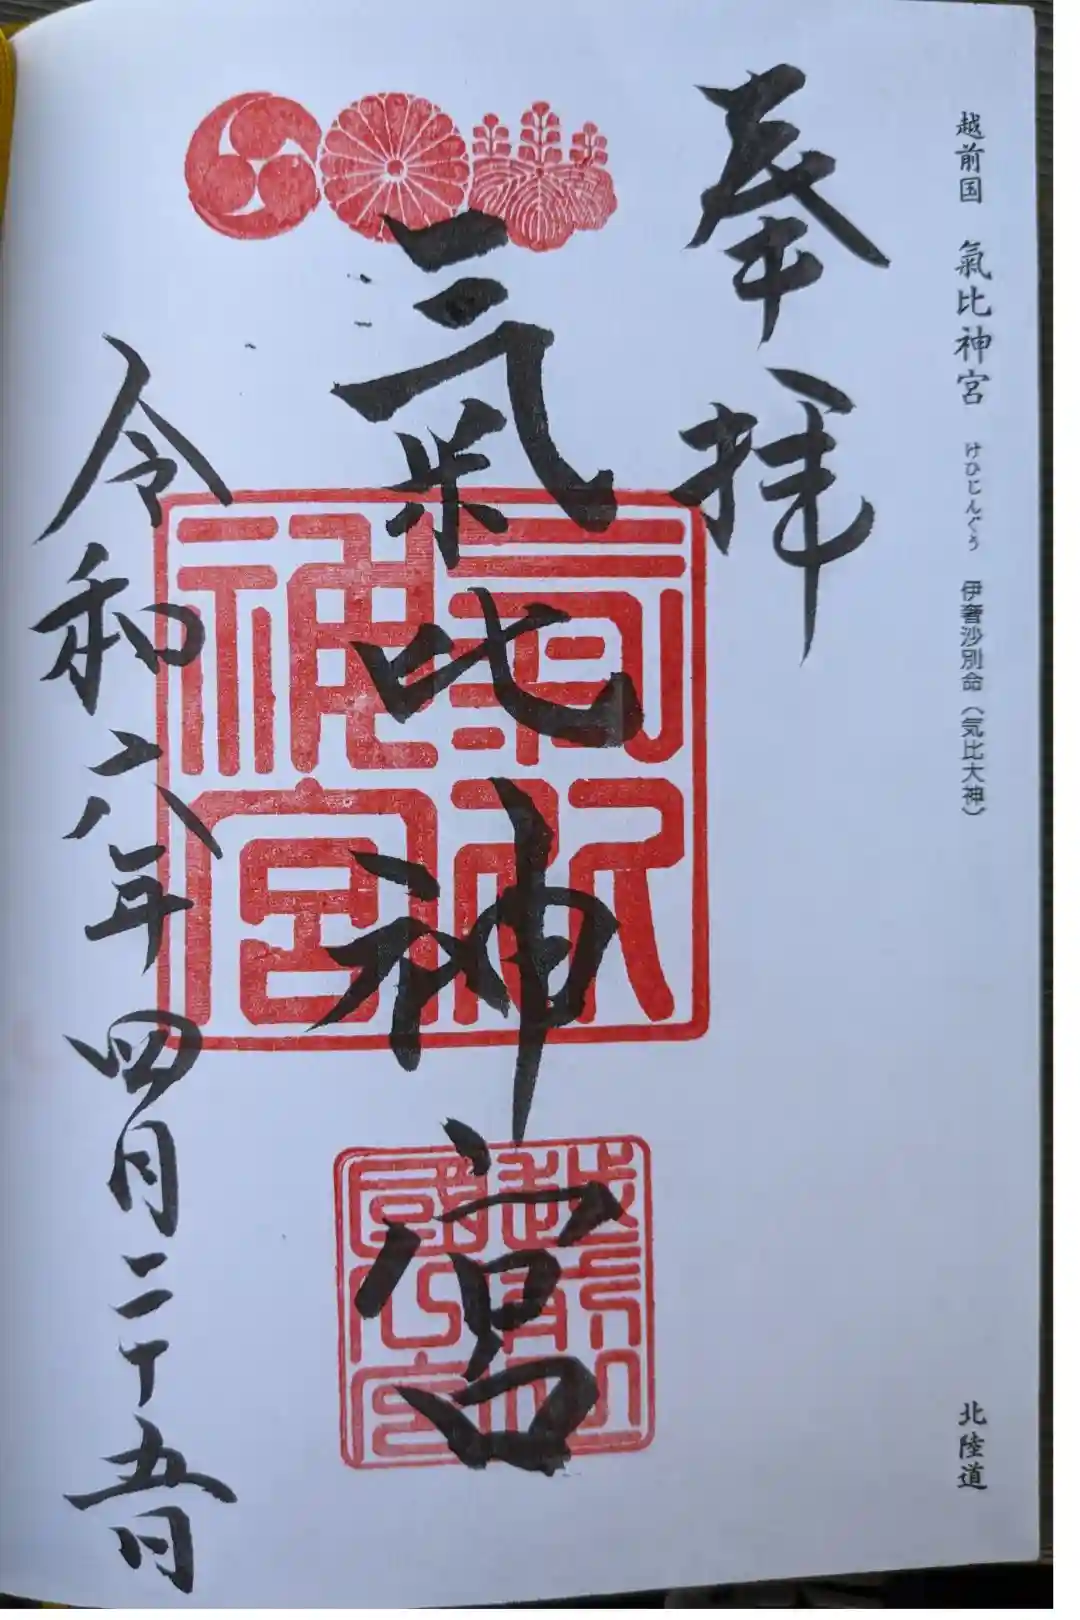 越前国 氣比神宮 けひじんぐう 伊奢沙別命（気比大神） 北陸道
奉拝
氣比神宮
氣比
神宮
令和六年四月二十五日